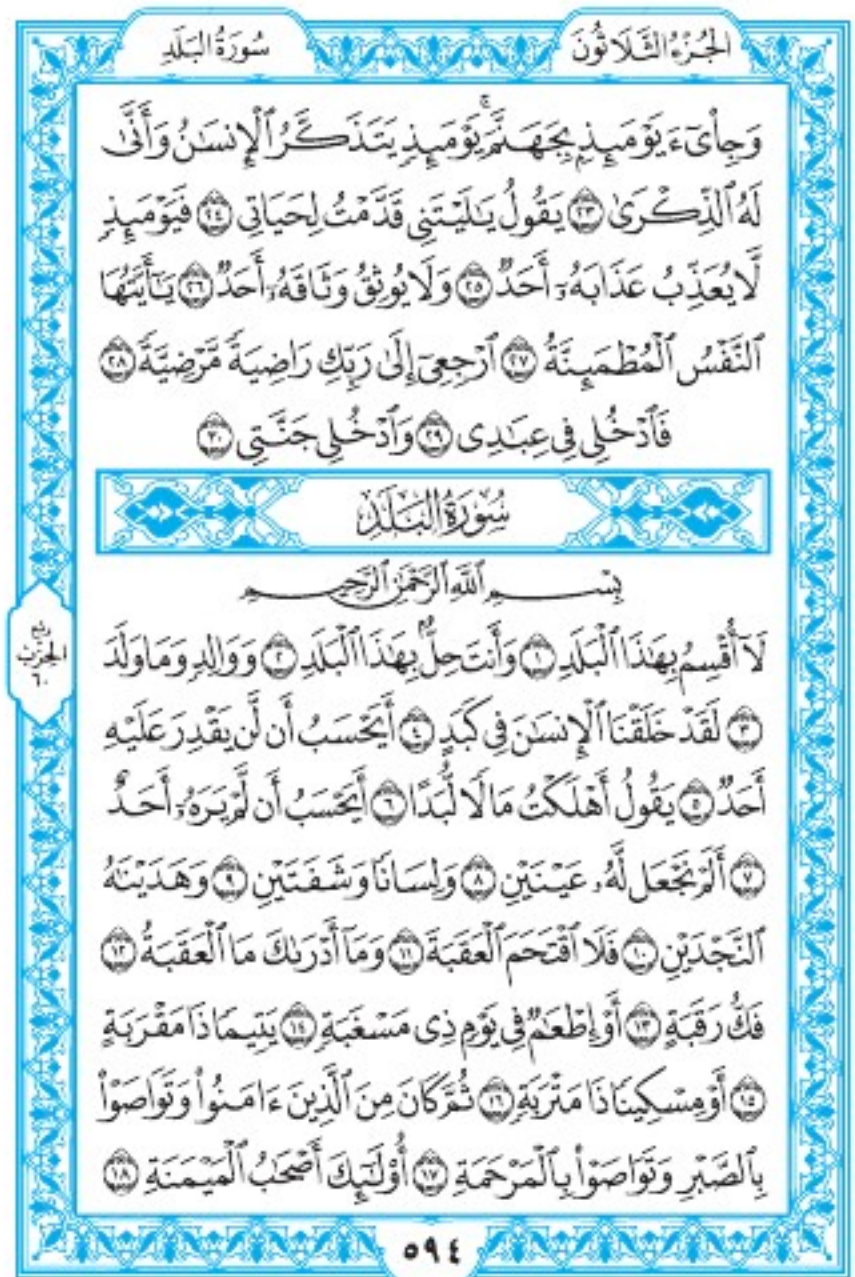 سُورَةُ البَلَدِ
الجُزْءُ الثَّلَاثُونَ
وَجِاْىٓءَ يَوْمَئِذِۭ بِجَهَنَّمَۚ يَوْمَئِذٖ يَتَذَكَّرُ ٱلْإِنسَٰنُ وَأَنَّىٰ
لَهُ ٱلذِّكْرَىٰ ٢٣ يَقُولُ يَٰلَيْتَنِى قَدَّمْتُ لِحَيَاتِى ٢٤ فَيَوْمَئِذٖ
لَّا يُعَذِّبُ عَذَابَهُۥٓ أَحَدٌ ٢٥ وَلَا يُوثِقُ وَثَاقَهُۥٓ أَحَدٌ ٢٦ يَٰٓأَيَّتُهَا
ٱلنَّفْسُ ٱلْمُطْمَئِنَّةُ ٢٧ ٱرْجِعِىٓ إِلَىٰ رَبِّكِ رَاضِيَةً مَّرْضِيَّةً ٢٨
فَٱدْخُلِى فِى عِبَٰدِى ٢٩ وَٱدْخُلِى جَنَّتِى ٣٠
سُورَةُ البَلَدِ
بِسْمِ ٱللَّهِ ٱلرَّحْمَٰنِ ٱلرَّحِيمِ
لَآ أُقْسِمُ بِهَٰذَا ٱلْبَلَدِ ١ وَأَنتَ حِلُّۢ بِهَٰذَا ٱلْبَلَدِ ٢ وَوَالِدٍ وَمَا وَلَدَ
٣ لَقَدْ خَلَقْنَا ٱلْإِنسَٰنَ فِى كَبَدٍ ٤ أَيَحْسَبُ أَن لَّن يَقْدِرَ عَلَيْهِ
أَحَدٌ ٥ يَقُولُ أَهْلَكْتُ مَالًا لُّبَدًا ٦ أَيَحْسَبُ أَن لَّمْ يَرَهُۥٓ أَحَدٌ
٧ أَلَمْ نَجْعَل لَّهُۥ عَيْنَيْنِ ٨ وَلِسَانًا وَشَفَتَيْنِ ٩ وَهَدَيْنَٰهُ
ٱلنَّجْدَيْنِ ١٠ فَلَا ٱقْتَحَمَ ٱلْعَقَبَةَ ١١ وَمَآ أَدْرَىٰكَ مَا ٱلْعَقَبَةُ ١٢
فَكُّ رَقَبَةٍ ١٣ أَوْ إِطْعَٰمٌ فِى يَوْمٍ ذِى مَسْغَبَةٍ ١٤ يَتِيمًا ذَا مَقْرَبَةٍ
١٥ أَوْ مِسْكِينًا ذَا مَتْرَبَةٍ ١٦ ثُمَّ كَانَ مِنَ ٱلَّذِينَ ءَامَنُوا۟ وَتَوَاصَوْا۟
بِٱلصَّبْرِ وَتَوَاصَوْا۟ بِٱلْمَرْحَمَةِ ١٧ أُو۟لَٰٓئِكَ أَصْحَٰبُ ٱلْمَيْمَنَةِ ١٨
ربع
الحزب
٦٠
٥٩٤